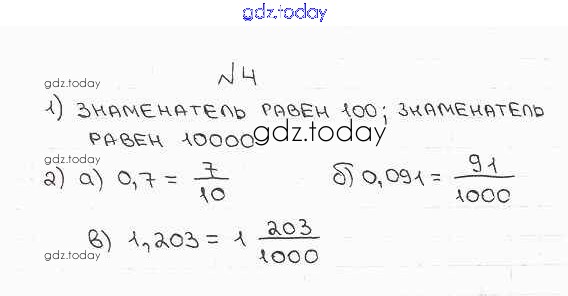 gdz.today
№4
gdz.today
1) ЗНАМЕНАТЕЛЬ РАВЕН 100; ЗНАМЕНАТЕЛЬ
РАВЕН 10000
gdz.today
gdz.today
2) а) 0,7 = 7/10 б) 0,091 = 91/1000
в) 1,203 = 1 203/1000
gdz.today
gdz.today